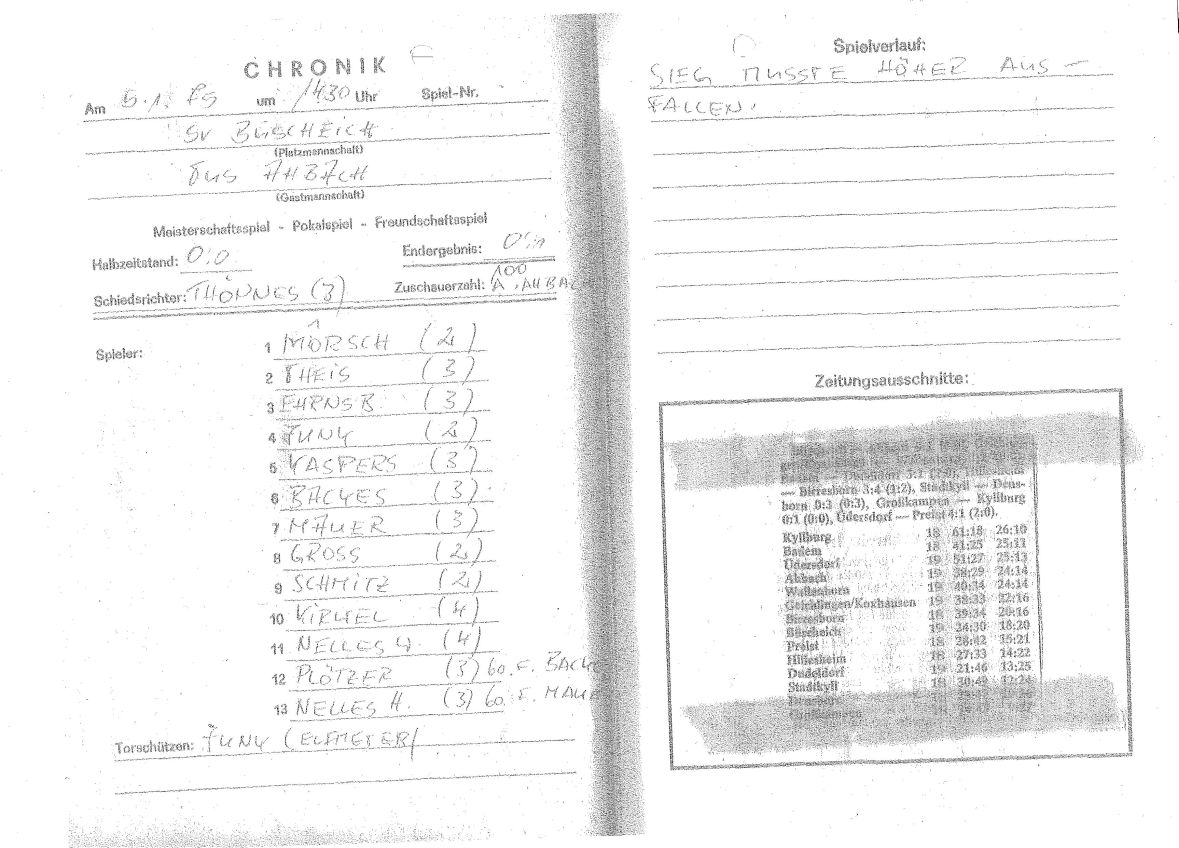 CHRONIK F
Am 5.1. um 1430 Uhr Spiel-Nr.
SV BÜSCHEICH
(Platzmannschaft)
TUS AHBACH
(Gastmannschaft)
Meisterschaftsspiel - Pokalspiel - Freundschaftsspiel
Halbzeitstand: 0:0 Endergebnis: 0:1
Schiedsrichter: THÖNNES (3) Zuschauerzahl: 100
A. AHBACH
Spieler: 1 MÖRSCH (2)
2 THEIS (3)
3 EHRNSB (3)
4 JUNK (2)
5 KASPERS (3)
6 BACKES (3)
7 MAUER (3)
8 GROSS (2)
9 SCHMITZ (2)
10 KIRWEL (4)
11 NELLES W. (4)
12 PLÖTZER (3) 60. F. BACK
13 NELLES H. (3) 60. F. MAUE
Torschützen: JUNK (ELFMETER)
Spielverlauf:
SIEG MUSSTE HÖHER AUS-
FALLEN.
Zeitungsausschnitte:
— Birresborn 3:4 (1:2), Stadtkyll — Dens-
born 0:3 (0:3), Großkampen — Kyllburg
0:1 (0:0), Üdersdorf — Preist 4:1 (2:0).
Kyllburg 18 61:18 26:10
Badem 18 41:25 25:11
Üdersdorf 19 51:27 25:13
Ahbach 19 38:29 24:14
Wallenborn 19 40:34 24:14
Geichlingen/Koxhausen 19 38:33 22:16
Birresborn 18 39:34 20:16
Büscheich 19 24:30 18:20
Preist 18 28:42 15:21
Hillesheim 18 27:33 14:22
Dudeldorf 19 21:46 13:25
Stadtkyll 18 30:49 12:24
Densborn
Großkampen